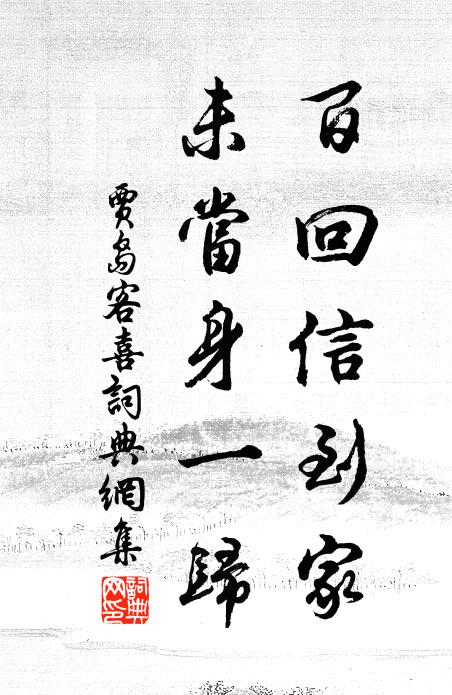 百回信到家
未當身一歸
賈島客喜詞典網集
詞典
网印